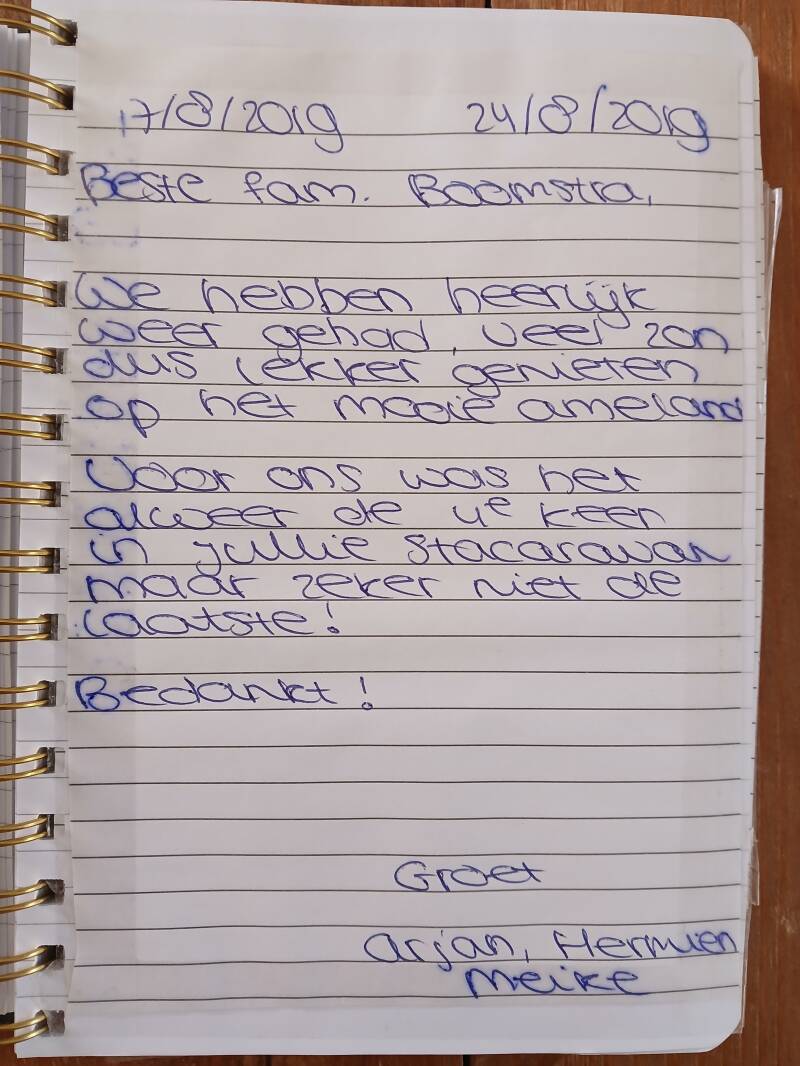 17/8/2019 24/8/2019
Beste fam. Boomstra,
We hebben heerlijk
weer gehad, veel zon
dus lekker genieten
op het mooie ameland
Voor ons was het
alweer de 4e keer
in jullie stacaravan
maar zeker niet de
laatste!
Bedankt!
Groet
Arjan, Hermien
Meike